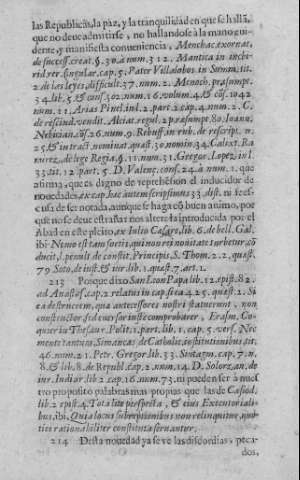 las Republicas, la paz, y la tranquilidad en que se halla,
que no deue admitirse, no hallandose à la mano gui-
dente, y manifiesta conueniencia, Menchac. exornat.
de success. creat. §. 30. à num. 312. Mantica in
rid. rer. singular. cap. 5. Pater Villalobos in Summ. tit.
2. de las leyes, dificult. 37. num. 2. Menoch. præsumpt.
34. lib. 5. & cons. 302. num. 16. volum. 4. & cons. 1042
num. 21. Arias Pinel. in l. 2. part. 2. cap. 4. num. 2. C.
de rescind. vendit. Alciat. regul. 2. præsumpt. 80. Ioann.
cons. 26. num. 9. Rebuff. in rub. de rescript. n.
25. & in tract. nominat. quæst. 30. nomin. 34. Calixt. Ra-
mirez, de lege Regia, §. 11. num. 31. Gregor. Lopez, in l.
33. tit. 12. part. 5. D. Valenç. cons. 24. à num. 1. que
afirma, que es digno de reprehension el inducidor de
nouedades, ex cap. hac autem scripsimus 33. dist. ni se es-
cusa de ser notada, aunque se haga cõ buen animo, por
que no se deue estrañar nos altere la introducida por el
Abad en este pleito, ex Iulio Cæsare, lib. 6. de bell. Gal.
ibi: Nemo est tam fortis, qui non rei nouitate turbetur, cõ-
ducit, l. penult. de constit. Princip. S. Thom. 2. 2. quæst.
79. Soto, de iust. & iur. lib. 1. quæst. 7. art. 1.
213 Porque dixo San Leon Papa lib. 12. epist. 82.
ad Anast. cap. 2. relatus in cap. si ea 4. 25. quæst. 2. Si
ea destruerem, quæ antecessores nostri statuerunt, non
constructor, sed euersor iuste comprobarer, Erasm. Co-
quier in Thesaur. Polit. 1. part. lib. 1. cap. 5. vers. Nec
mente tantum, Simancas de Catholic. institutionibus tit.
46. num. 21. Petr. Gregor. lib. 33. Sintagm. cap. 7. n.
8. & lib. 8. de Republ. cap. 2. num. 14. D. Solorz. an. de
iur. Indiar. lib. 2. cap. 16. num. 73. ni pueden ser à nues-
tro proposito palabras mas propias que las de Casiod.
lib. 2. epist. 4. Tota lite perspecta, & eius Executorialibus,
ibi, Quia locus subreptionibus non relinquitur, quo-
ties rationabiliter constituta seruantur.
214 Desta nouedad ya se vè las discordias, peca-
dos,